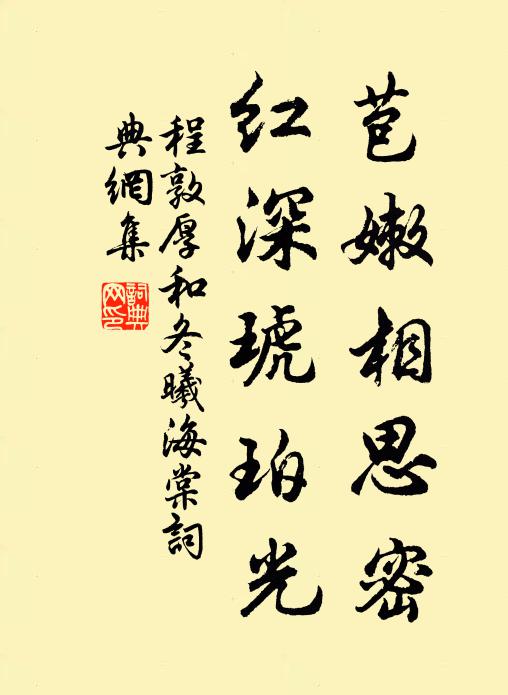 苞嫩相思密
红深琥珀光
程敦厚和冬曦海棠詞
典網集
詞典
网印